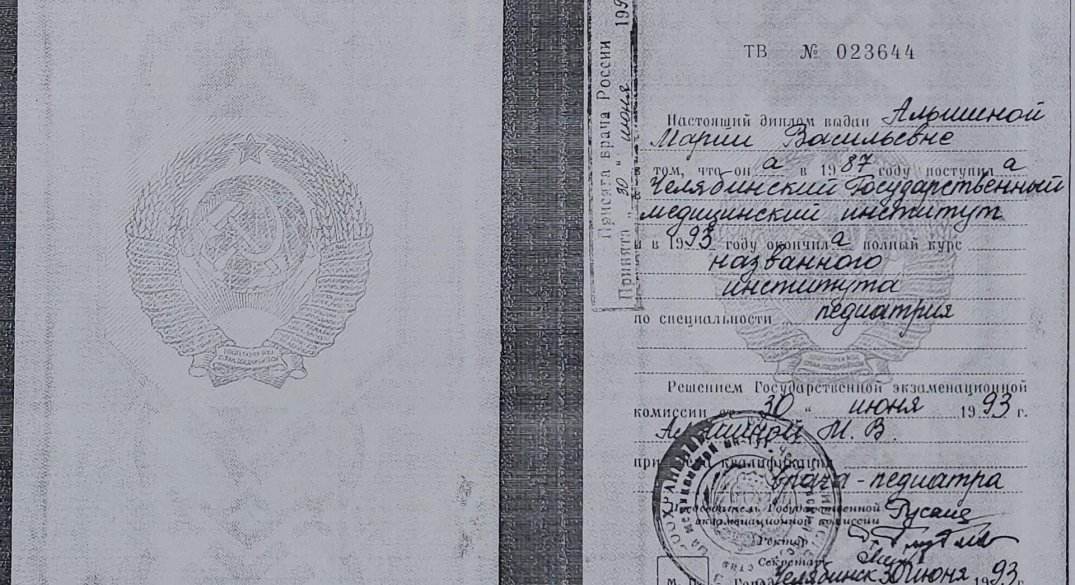 ТВ № 023644
Настоящий диплом выдан Алышиной
Марии Васильевне
в том, что он а в 1987 году поступил а
в Челябинский Государственный
медицинский институт
и в 1993 году окончил а полный курс
названного
института
по специальности педиатрия
Решением Государственной экзаменационной
комиссии от 30 " июня 1993 г.
Алышиной М. В.
квалификация
врача-педиатра
Председатель Государственной
экзаменационной комиссии
Ректор
Секретарь
М. П. Город Челябинск 30 июня 1993
Присяга врача России
Принята " 30 " июня 199